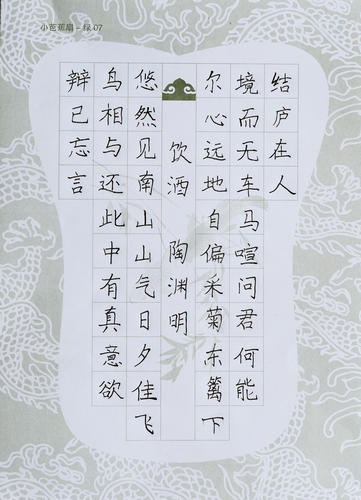 小芭蕉扇 - 绿.07
结庐在人
境而无车马喧问君何能
尔心远地自偏采菊东篱下
饮酒 陶渊明
悠然见南山山气日夕佳飞
鸟相与还此中有真意欲
辩已忘言